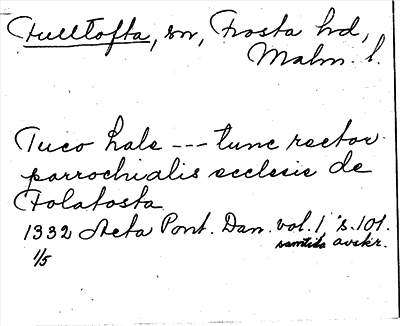 Fulltofta, sn, Frosta hd,
Malm. l.
Tuco hals --- tunc rector
parrochialis ecclesie de
Folatosta
1332 Acta Pont. Dan. vol. 1, s. 101.
1/5 samtida avskr.